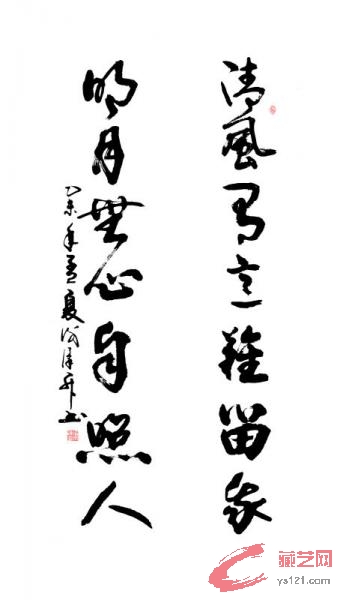 清風有意難留我
明月無心自照人
未年孟夏 书
藏艺网
ys121.com